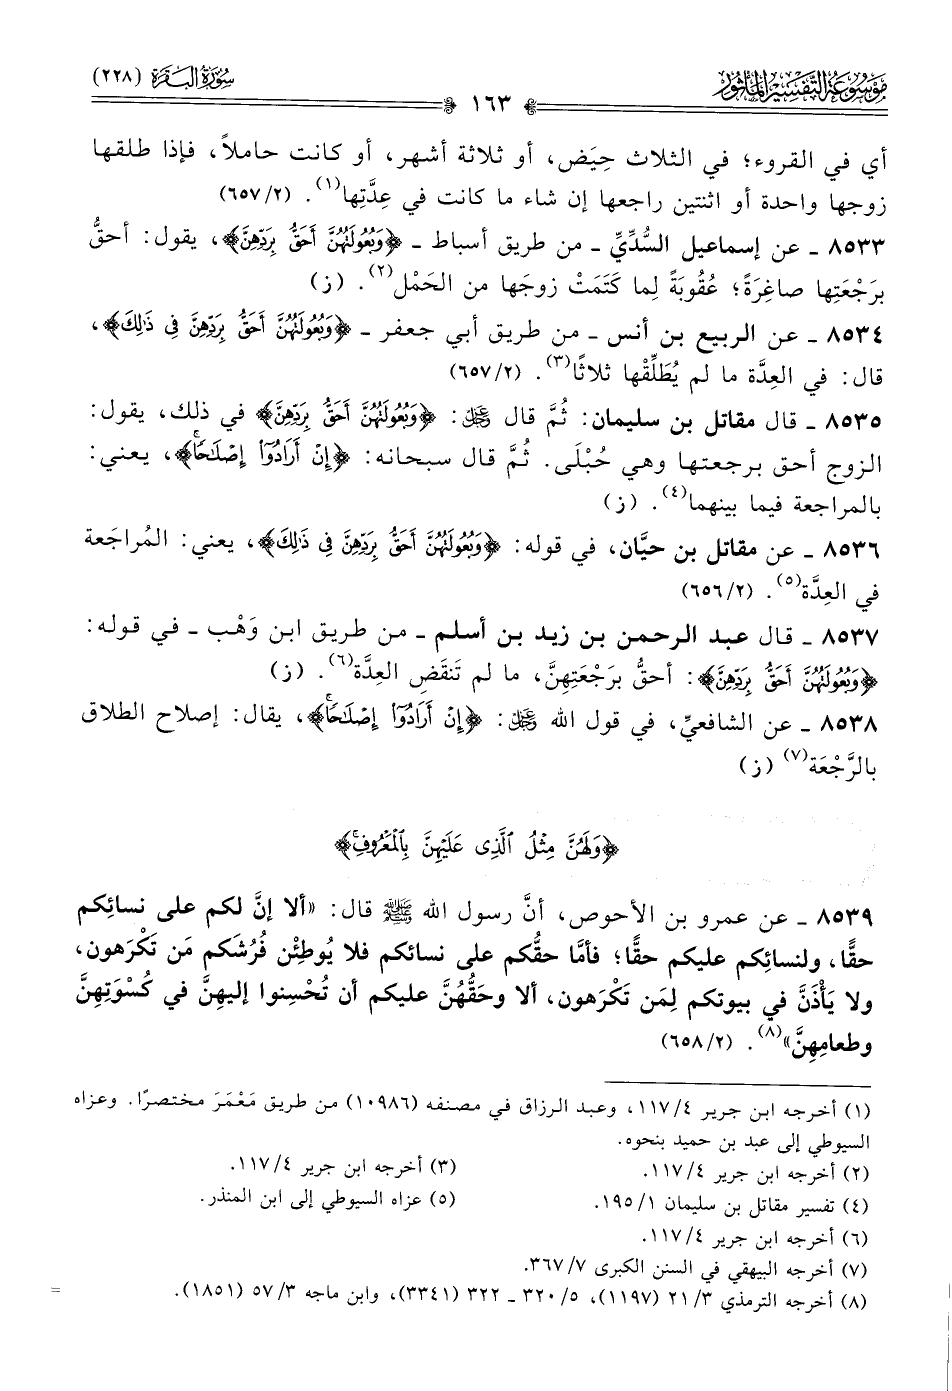 موسوعة التفسير المأثور
سورة البقرة (٢٢٨)
١٦٣
أي في القروء؛ في الثلاث حِيَض، أو ثلاثة أشهر، أو كانت حاملاً، فإذا طلقها
زوجها واحدة أو اثنتين راجعها إن شاء ما كانت في عِدَّتِها(١). (٢/٦٥٧)
٨٥٣٣ ـ عن إسماعيل السُّدِّيِّ ـ من طريق أسباط ـ ﴿وَبُعُولَتُهُنَّ أَحَقُّ بِرَدِّهِنَّ﴾، يقول: أحقُّ
برَجْعَتِها صاغِرَةً؛ عُقُوبَةً لِما كَتَمَتْ زوجَها من الحَمْل(٢). (ز)
٨٥٣٤ ـ عن الربيع بن أنس ـ من طريق أبي جعفر ـ ﴿وَبُعُولَتُهُنَّ أَحَقُّ بِرَدِّهِنَّ فِى ذَٰلِكَ﴾،
قال: في العِدَّة ما لم يُطَلِّقْها ثلاثًا(٣). (٢/٦٥٧)
٨٥٣٥ ـ قال مقاتل بن سليمان: ثُمَّ قال ﷿: ﴿وَبُعُولَتُهُنَّ أَحَقُّ بِرَدِّهِنَّ﴾ في ذلك، يقول:
الزوج أحق برجعتها وهي حُبْلَى. ثُمَّ قال سبحانه: ﴿إِنْ أَرَادُوٓا۟ إِصْلَٰحًا﴾، يعني:
بالمراجعة فيما بينهما(٤). (ز)
٨٥٣٦ ـ عن مقاتل بن حيَّان، في قوله: ﴿وَبُعُولَتُهُنَّ أَحَقُّ بِرَدِّهِنَّ فِى ذَٰلِكَ﴾، يعني: المُراجَعة
في العِدَّة(٥). (٢/٦٥٦)
٨٥٣٧ ـ قال عبد الرحمن بن زيد بن أسلم ـ من طريق ابن وَهْب ـ في قوله:
﴿وَبُعُولَتُهُنَّ أَحَقُّ بِرَدِّهِنَّ﴾: أحقُّ برَجْعَتِهِنَّ، ما لم تَنقَضِ العِدَّة(٦). (ز)
٨٥٣٨ ـ عن الشافعيِّ، في قول الله ﷿: ﴿إِنْ أَرَادُوٓا۟ إِصْلَٰحًا﴾، يقال: إصلاح الطلاق
بالرَّجْعَة(٧) (ز)
﴿وَلَهُنَّ مِثْلُ ٱلَّذِى عَلَيْهِنَّ بِٱلْمَعْرُوفِ﴾
٨٥٣٩ ـ عن عمرو بن الأحوص، أنَّ رسول الله ﷺ قال: «ألا إنَّ لكم على نسائِكم
حقًّا، ولنسائِكم عليكم حقًّا؛ فأمَّا حقُّكم على نسائكم فلا يُوطِئْن فُرُشَكم مَن تَكْرَهون،
ولا يَأْذَنَّ في بيوتكم لِمَن تَكْرَهون، ألا وحَقُّهُنَّ عليكم أن تُحْسِنوا إليهِنَّ في كُسْوَتِهِنَّ
وطعامِهِنَّ»(٨). (٢/٦٥٨)
(١) أخرجه ابن جرير ٤/١١٧، وعبد الرزاق في مصنفه (١٠٩٨٦) من طريق مَعْمَرَ مختصرًا. وعزاه
السيوطي إلى عبد بن حميد بنحوه.
(٢) أخرجه ابن جرير ٤/١١٧.
(٣) أخرجه ابن جرير ٤/١١٧.
(٤) تفسير مقاتل بن سليمان ١/١٩٥.
(٥) عزاه السيوطي إلى ابن المنذر.
(٦) أخرجه ابن جرير ٤/١١٧.
(٧) أخرجه البيهقي في السنن الكبرى ٧/٣٦٧.
(٨) أخرجه الترمذي ٣/٢١ (١١٩٧)، ٥/٣٢٠ ـ ٣٢٢ (٣٣٤١)، وابن ماجه ٣/٥٧ (١٨٥١).
=